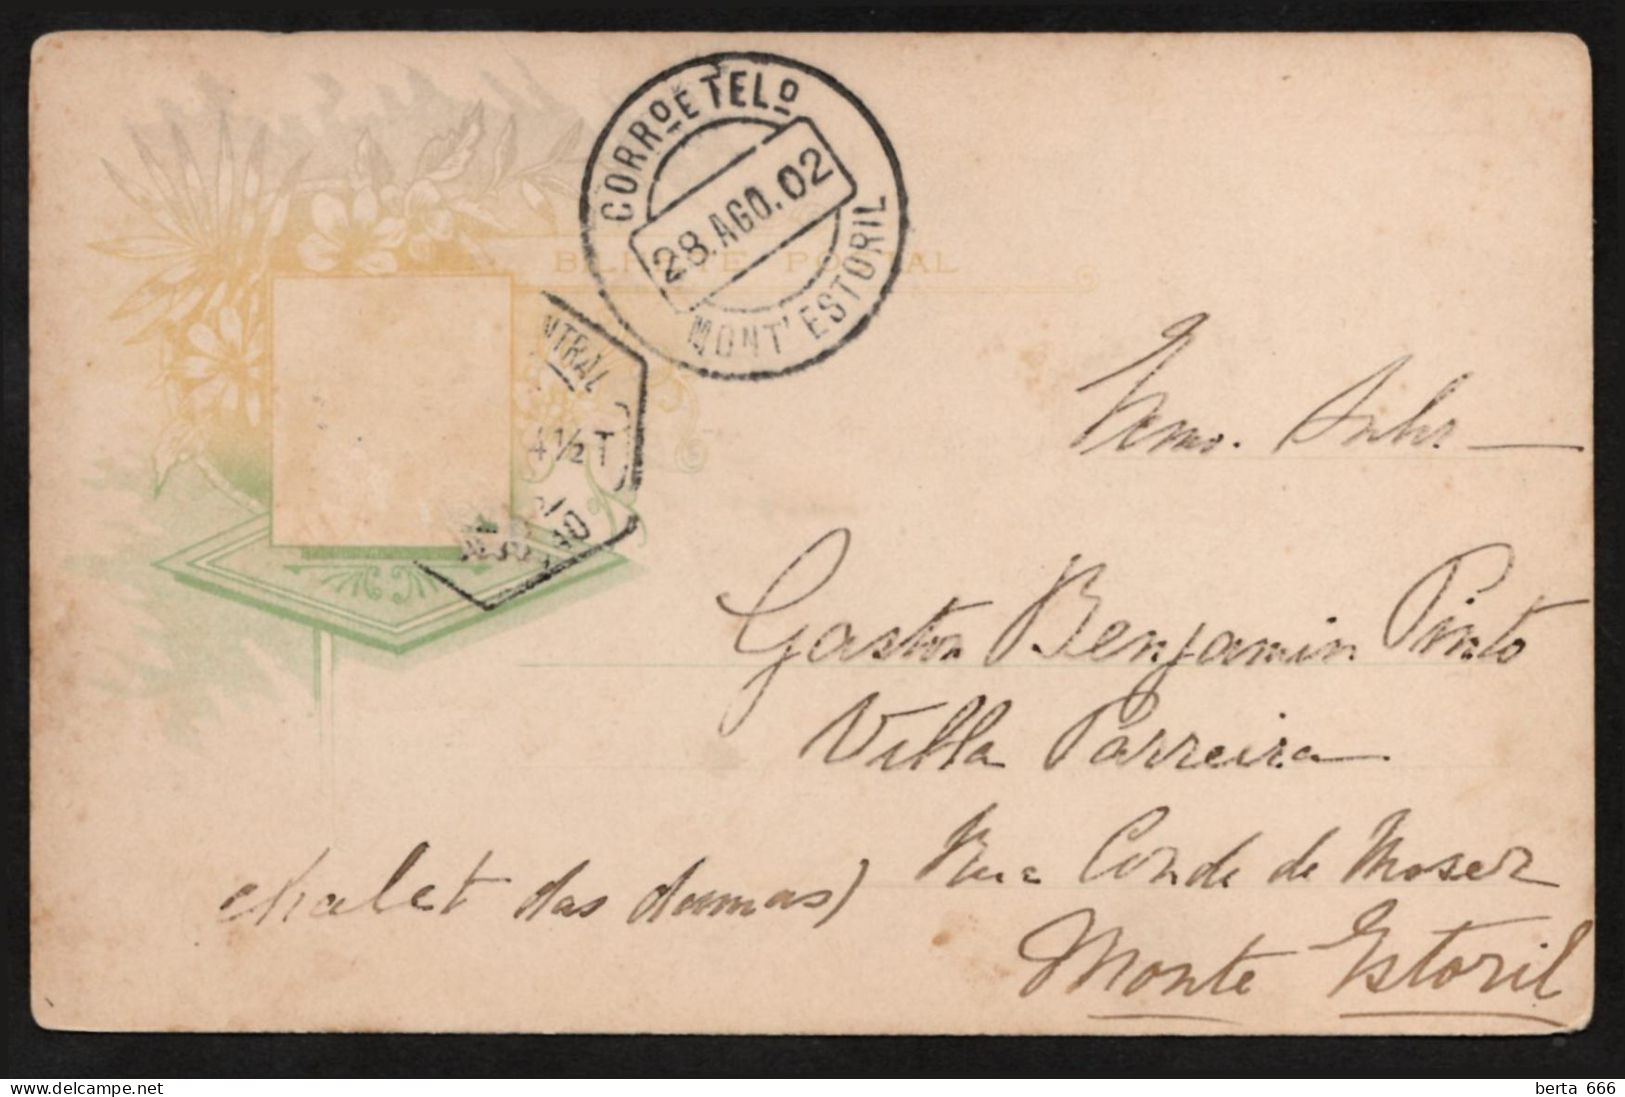 CORRº E TELº
28. AGO. 02
MONT' ESTORIL
BILHETE POSTAL
NTRAL
4 ½ T
Exmo. Snhr
Gaston Benjamin Pinto
Villa Parreira
Rua Conde de Moser
chalet das damas)
Monte Estoril
berta 666